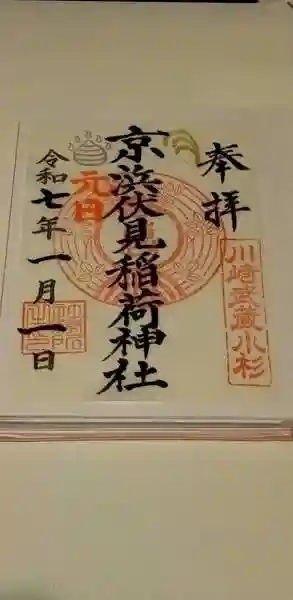 奉拝
川崎武蔵小杉
京浜伏見稲荷神社
元旦
令和七年一月一日